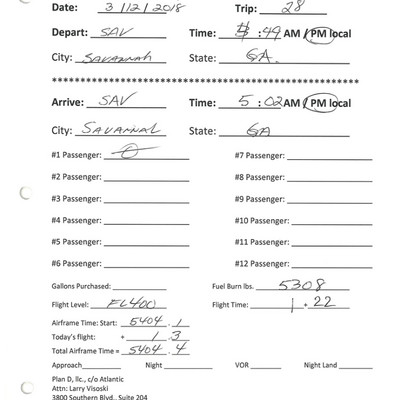 Date: 3/12/2018 Trip: 28
Depart: SAV Time: :49 AM / PM local
City: Savannah State: GA.
**********************************************
Arrive: SAV Time: 5:02 AM / PM local
City: SAVANNAH State: GA
#1 Passenger: #7 Passenger:
#2 Passenger: #8 Passenger:
#3 Passenger: #9 Passenger:
#4 Passenger: #10 Passenger:
#5 Passenger: #11 Passenger:
#6 Passenger: #12 Passenger:
Gallons Purchased: Fuel Burn lbs. 5308
Flight Level: FL400 Flight Time: 1 + 22
Airframe Time: Start: 5404.1
Today's flight: + 1.3
Total Airframe Time = 5404.4
Approach Night VOR Night Land
Plan D, llc., c/o Atlantic
Attn: Larry Visoski
3800 Southern Blvd., Suite 204